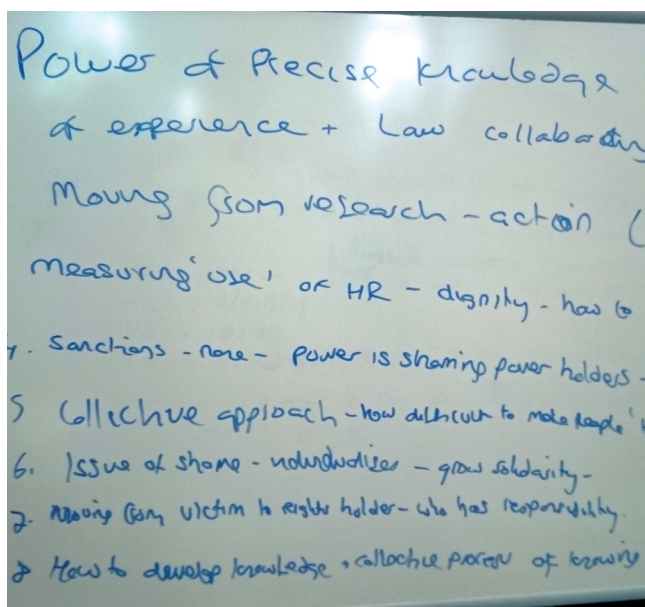 Power of Precise knowledge
of experience + Law collaborating
Moving from research - action (
Measuring 'use' of HR - dignity - how to
4. Sanctions - none - power is shaming power holders -
5 Collective approach - how difficult to make people '
6. Issue of shame - individualises - grow solidarity -
7. Moving from victim to rights holder - who has responsibility.
8 How to develop knowledge + collective process of knowing